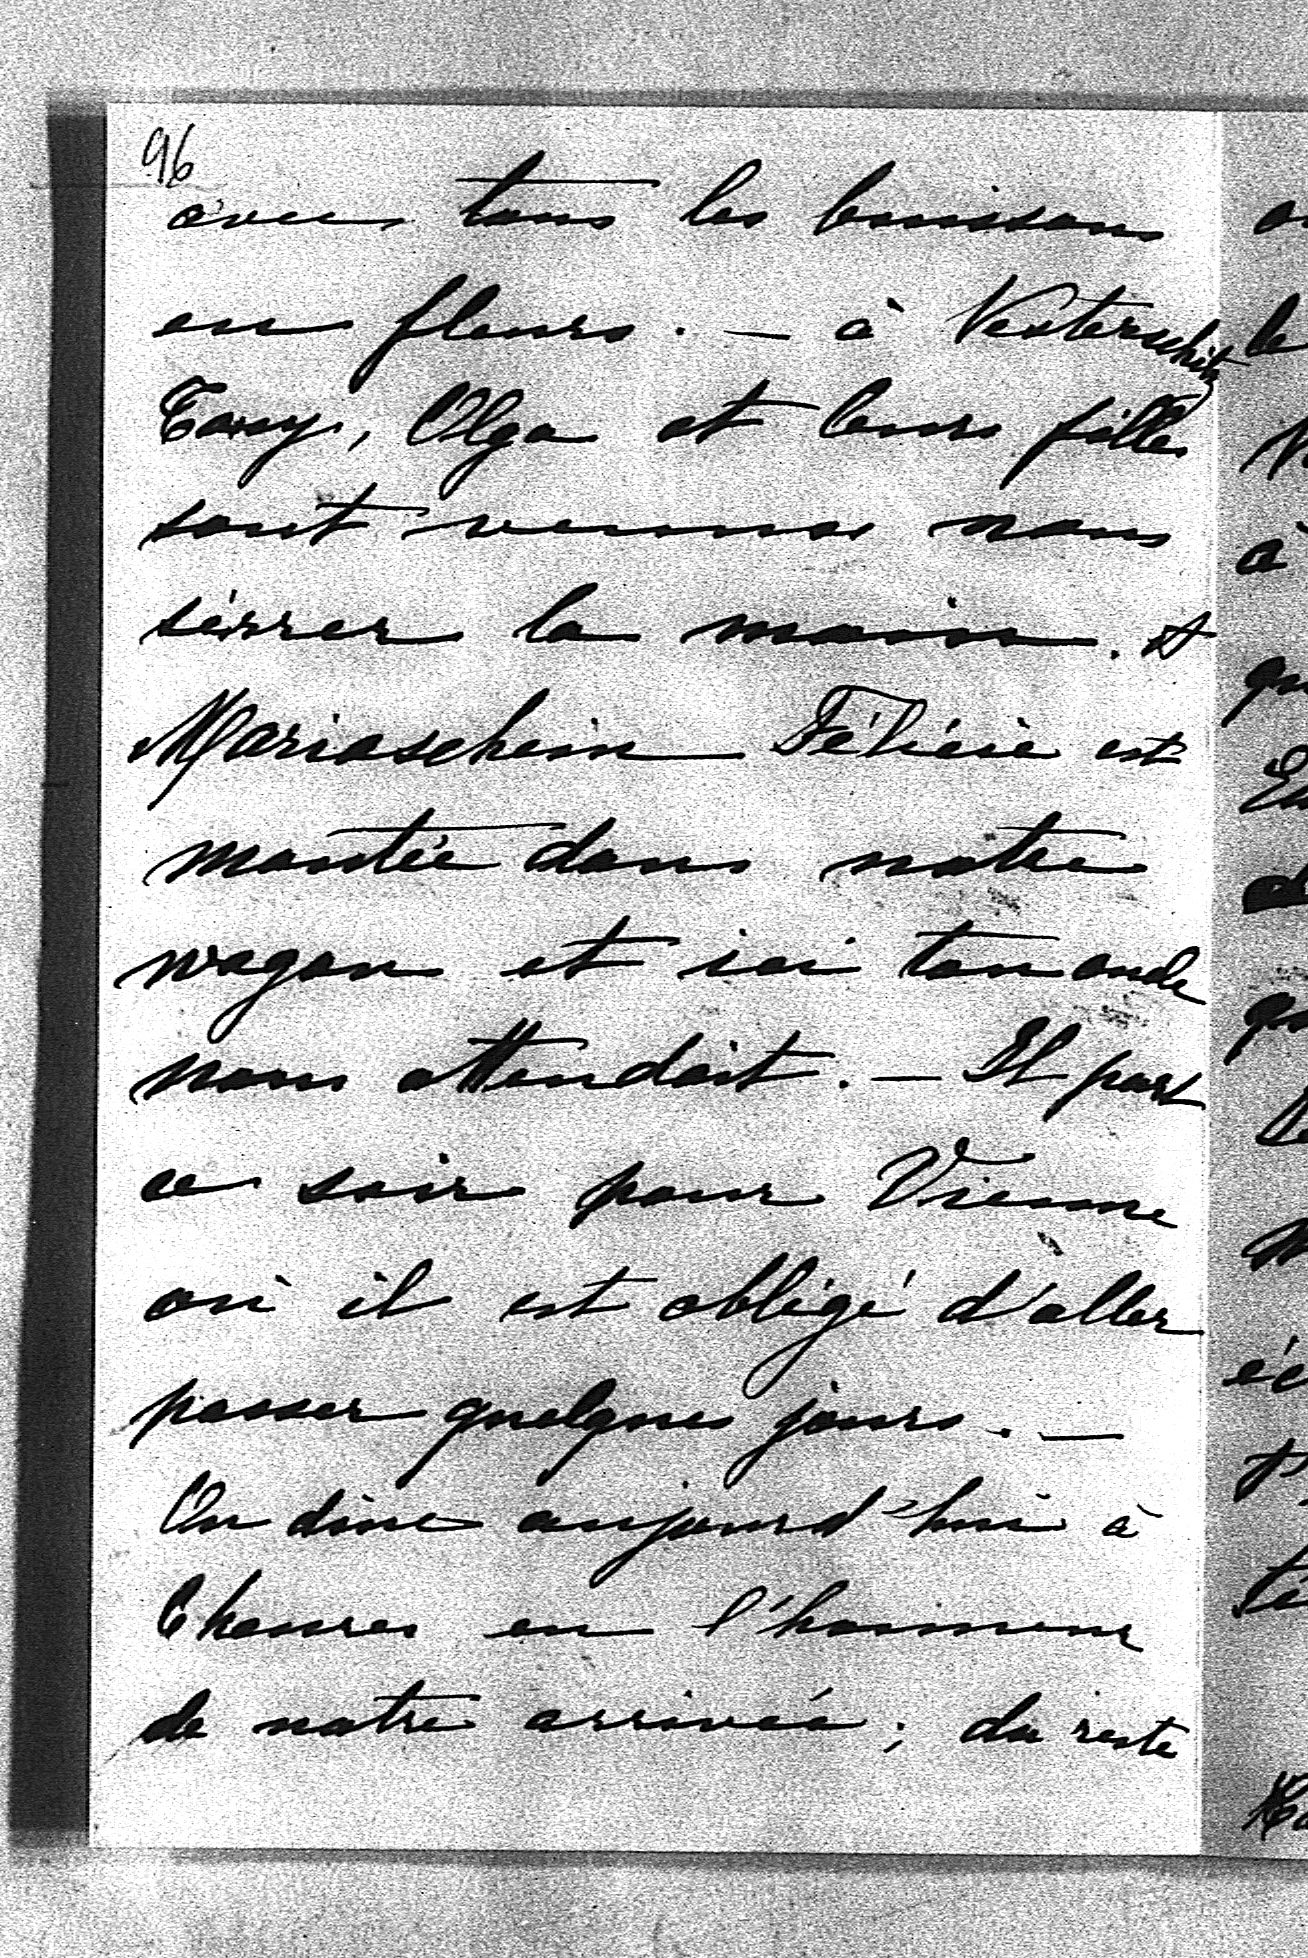 96
avec tous les buissons
en fleurs. — à Vesterschitz
Tony, Olga et leurs filles
sont venues nous
sérrer la main. A
Mariaschein Félicie est
montée dans notre
wagon et ici ton oncle
nous attendait. — Il part
ce soir pour Vienne
où il est obligé d'aller
passer quelques jours. —
On dine aujourd'hui à
6 heures en l'honneur
de notre arrivée; du reste